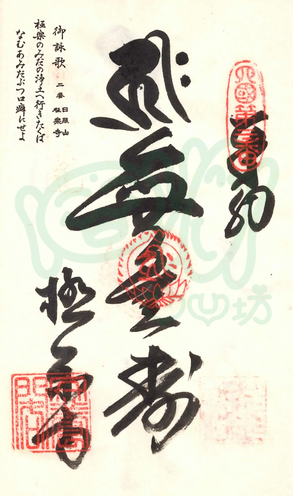 奉納
四國第二番
無量寿
極楽寺
御詠歌 二番 日照山 極楽寺
極楽のみだの浄土へ行きたくば
なむあみだぶつ口癖にせよ